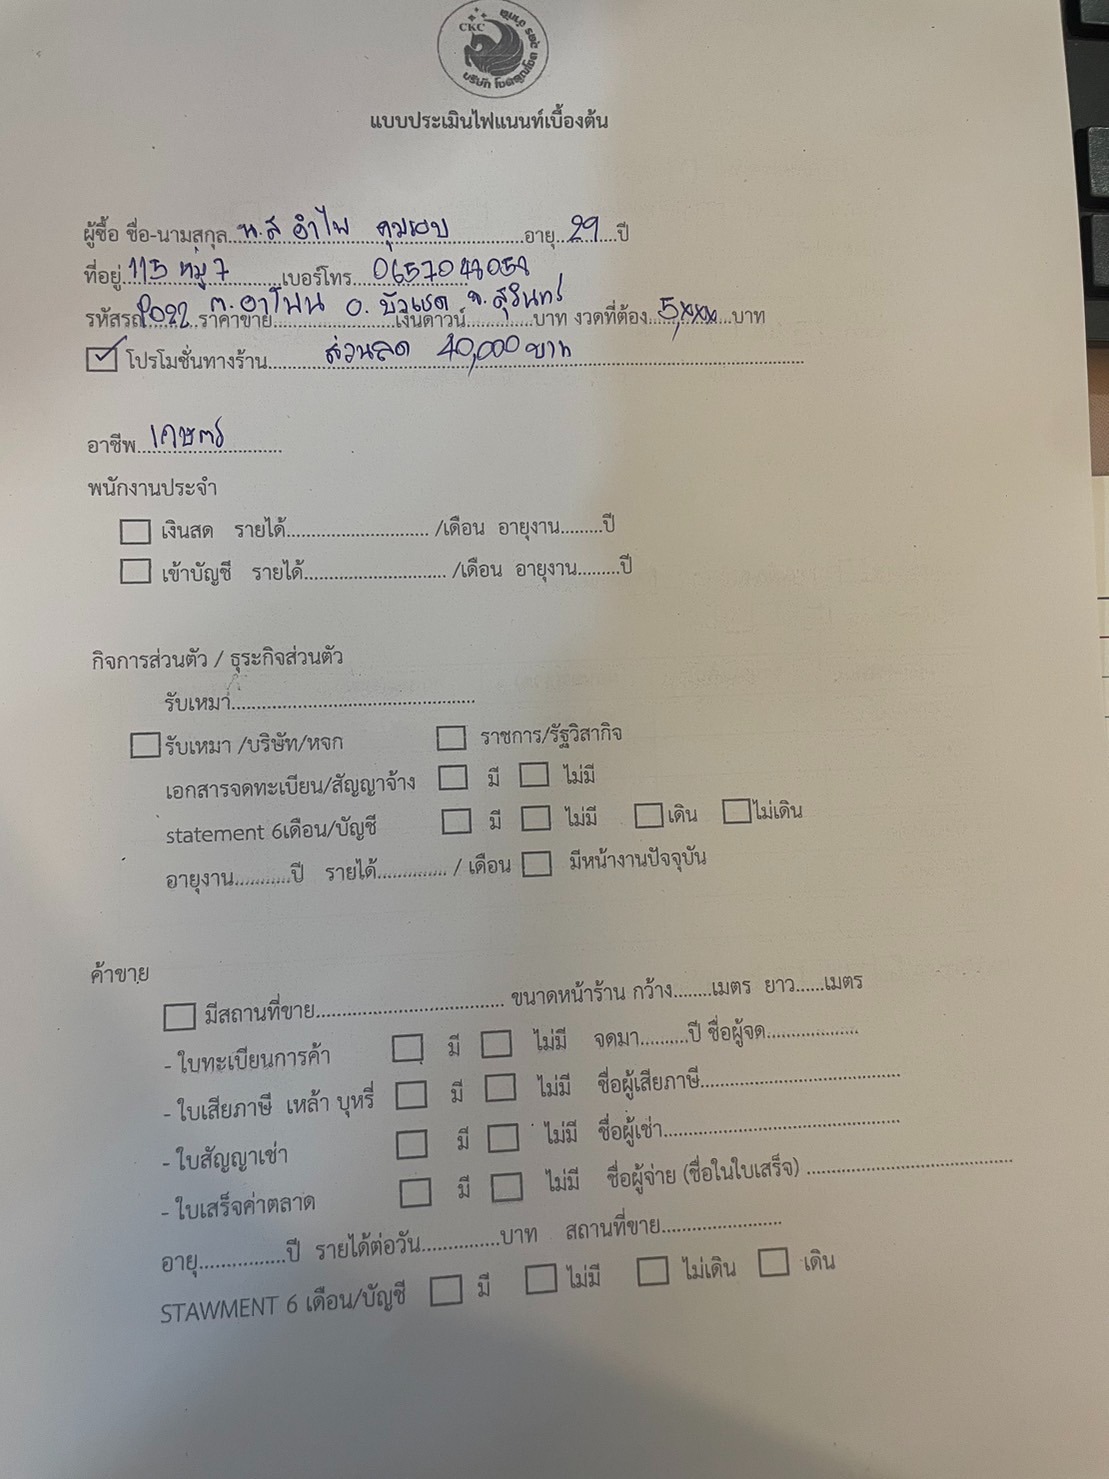 CKC
แบบประเมินไฟแนนท์เบื้องต้น
ผู้ซื้อ ชื่อ-นามสกุล..น.ส อำไพ..........อายุ..29..ปี
ที่อยู่.115 หมู่ 7........เบอร์โทร...
ต.อาโพน อ. บัวเชด จ.สุรินทร์
รหัสรถ........ราคาขาย....................เงินดาวน์............บาท งวดที่ต้อง..5,xxx..บาท
โปรโมชั่นทางร้าน........ส่วนลด 40,000 บาท........
อาชีพ..เกษตร........
พนักงานประจำ
เงินสด รายได้............................ /เดือน อายุงาน........ปี
เข้าบัญชี รายได้............................ /เดือน อายุงาน........ปี
กิจการส่วนตัว / ธุระกิจส่วนตัว
รับเหมา................................................
รับเหมา /บริษัท/หจก ราชการ/รัฐวิสากิจ
เอกสารจดทะเบียน/สัญญาจ้าง มี ไม่มี
statement 6เดือน/บัญชี มี ไม่มี เดิน ไม่เดิน
อายุงาน...........ปี รายได้.............. / เดือน มีหน้างานปัจจุบัน
ค้าขาย
มีสถานที่ขาย..................................... ขนาดหน้าร้าน กว้าง........เมตร ยาว......เมตร
- ใบทะเบียนการค้า มี ไม่มี จดมา..........ปี ชื่อผู้จด...................
- ใบเสียภาษี เหล้า บุหรี่ มี ไม่มี ชื่อผู้เสียภาษี........................................
- ใบสัญญาเช่า มี ไม่มี ชื่อผู้เช่า................................................
- ใบเสร็จค่าตลาด มี ไม่มี ชื่อผู้จ่าย (ชื่อในใบเสร็จ) ..........................................
อายุ.................ปี รายได้ต่อวัน................บาท สถานที่ขาย.........................
STAWMENT 6 เดือน/บัญชี มี ไม่มี ไม่เดิน เดิน